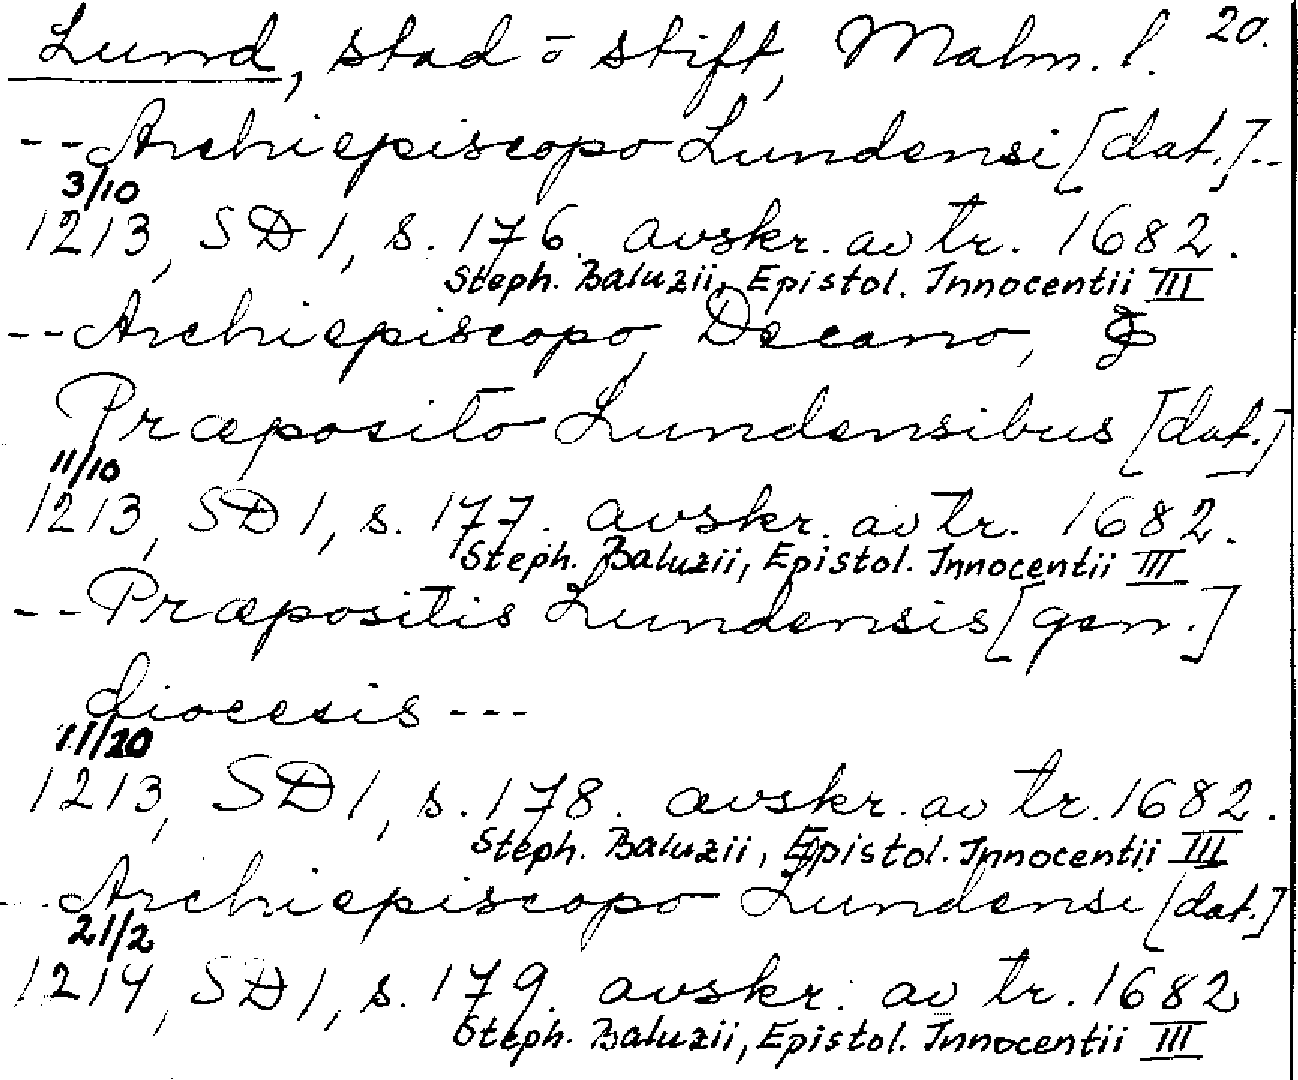 Lund, stad o stift, Malm. l. 20.
-- Archiepiscopo Lundensi [dat.] --
3/10
1213, SD 1, s. 176. avskr. av tr. 1682.
Steph. Baluzii, Epistol. Innocentii III
-- Archiepiscopo, Decano, &
Præposito Lundensibus [dat.]
11/10
1213, SD 1, s. 177. avskr. av tr. 1682.
Steph. Baluzii, Epistol. Innocentii III
-- Præpositis Lundensis [gen.]
diocesis ---
11/20
1213, SD 1, s. 178. avskr. av tr. 1682.
Steph. Baluzii, Epistol. Innocentii III
-- Archiepiscopo Lundensi [dat.]
21/2
1214, SD 1, s. 179. avskr. av tr. 1682
Steph. Baluzii, Epistol. Innocentii III